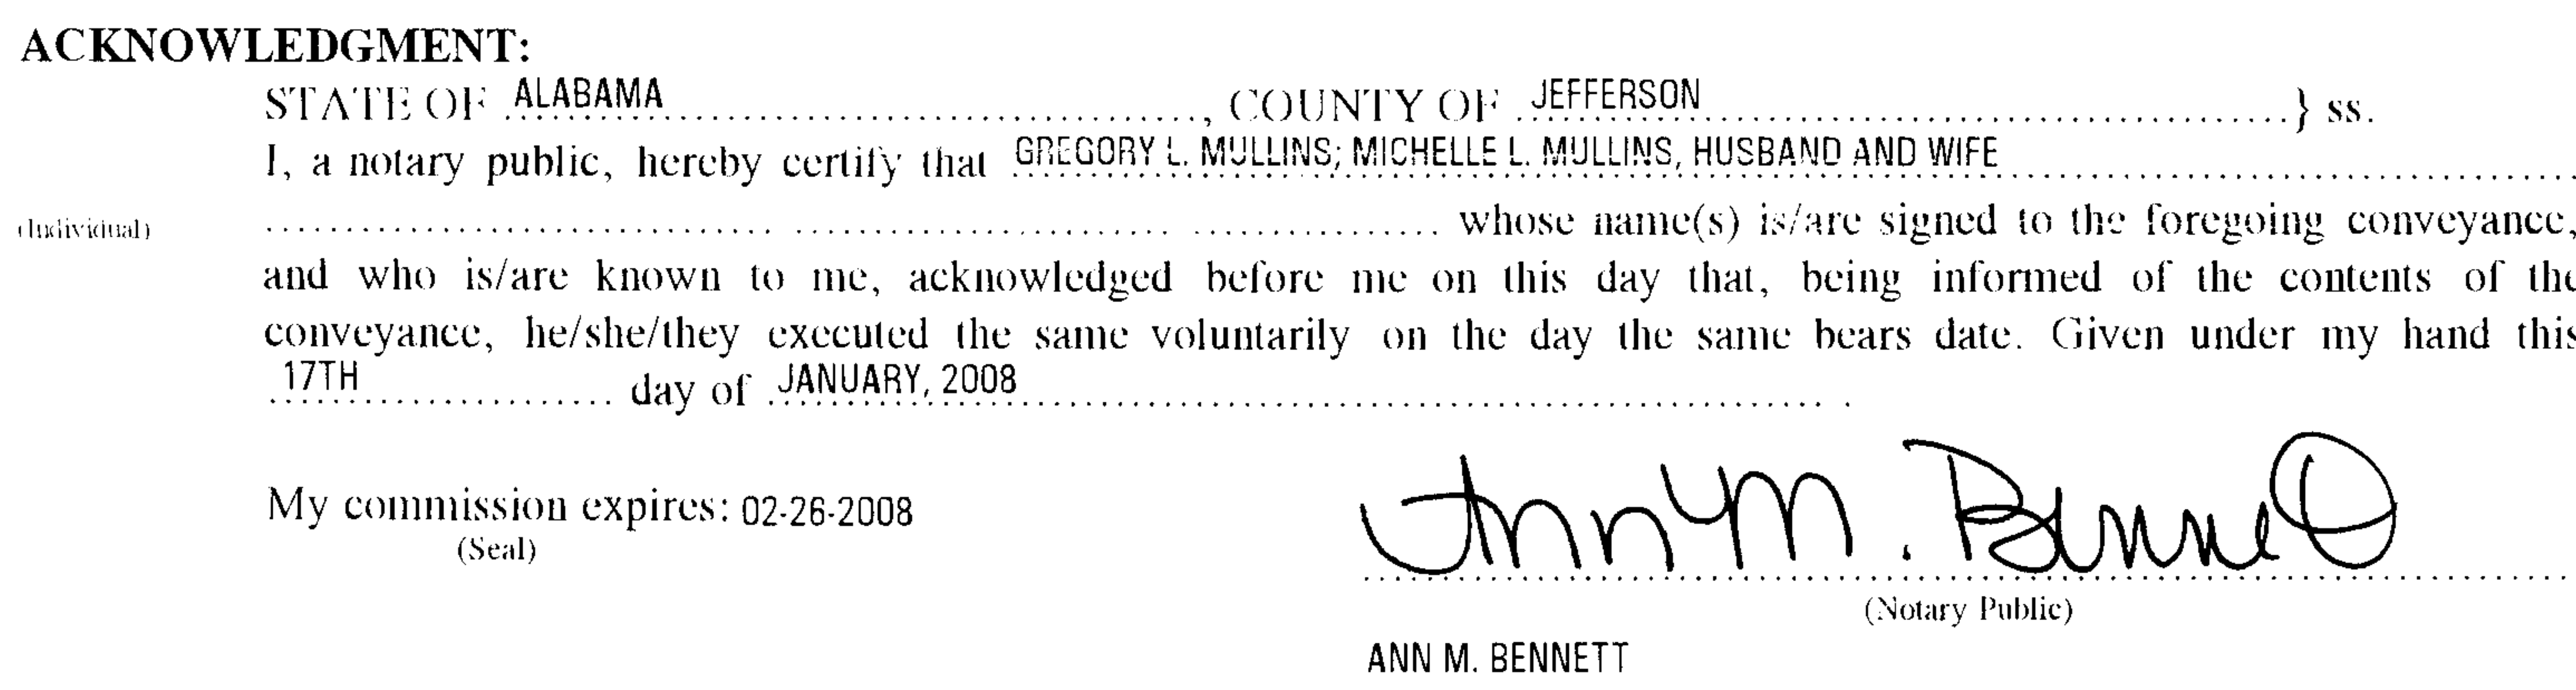 ACKNOWLEDGMENT:
STATE OF ALABAMA, COUNTY OF JEFFERSON } ss.
I, a notary public, hereby certify that GREGORY L. MULLINS; MICHELLE L. MULLINS, HUSBAND AND WIFE
(Individual) whose name(s) is/are signed to the foregoing conveyance,
and who is/are known to me, acknowledged before me on this day that, being informed of the contents of the
conveyance, he/she/they executed the same voluntarily on the day the same bears date. Given under my hand this
17TH day of JANUARY, 2008.
My commission expires: 02-26-2008
(Seal)
Ann M. Bennett
(Notary Public)
ANN M. BENNETT